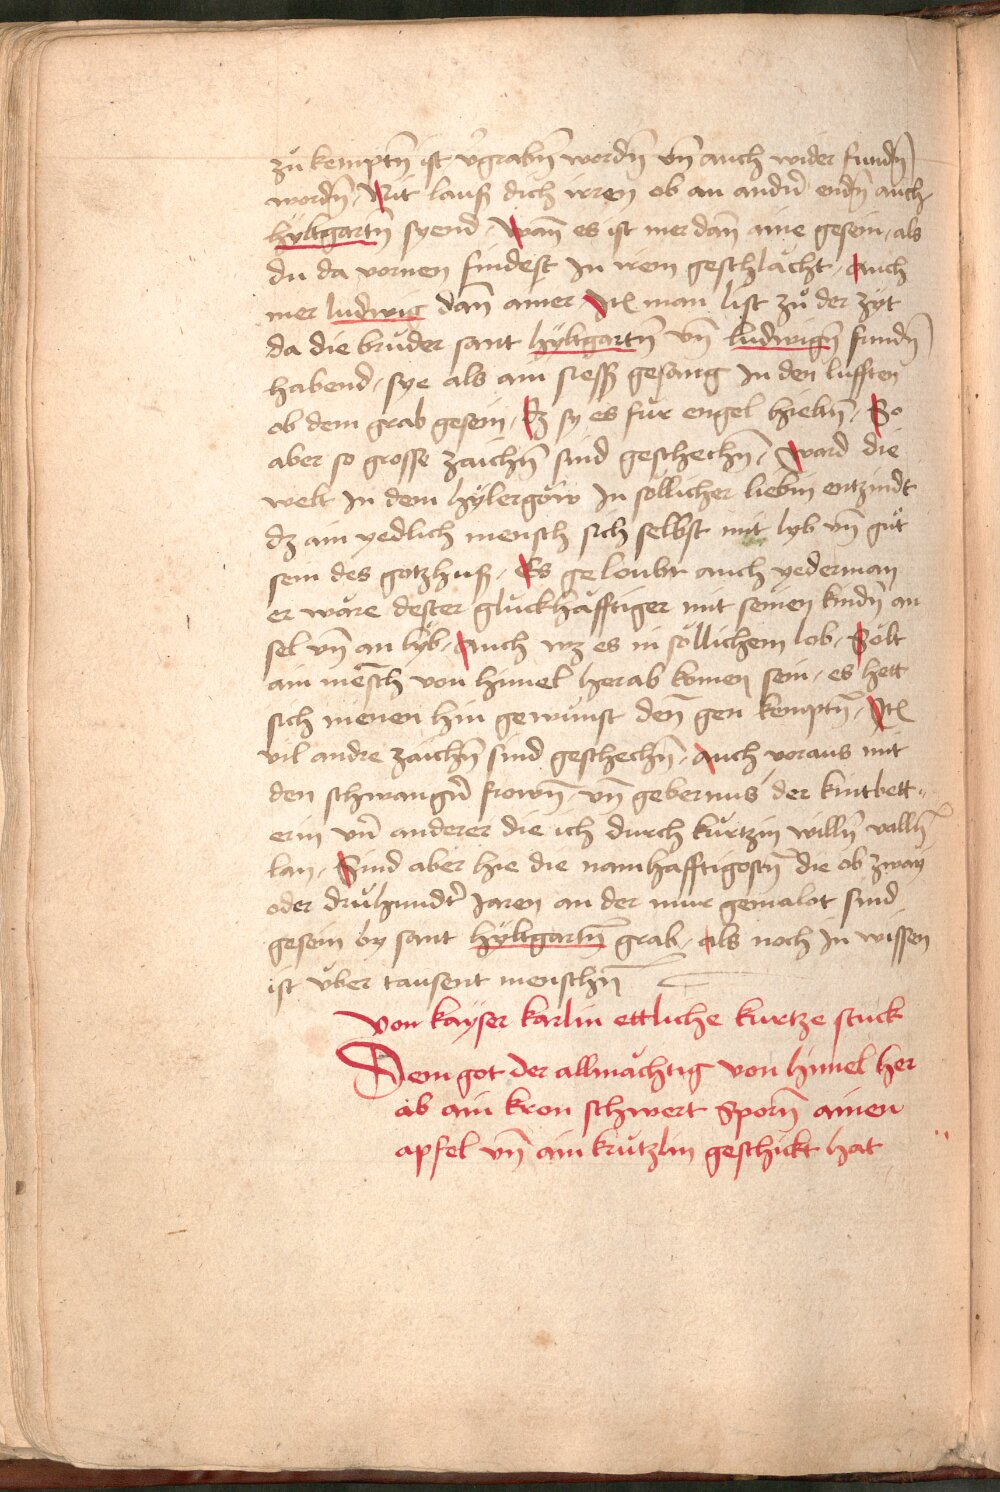 zů kemptn̄ ist v̓grabn̄ wordn̄ vn̄ auch wider fundn̄
wordn̄ / Nit lausz dich irren ob an andn̓ endn̄ auch
hyltgartn̄ syend / Wan̄ es ist mer dan̄ aine gesein / als
du da vornen findest In irem geschlächt / Auch
mer ludwig dan̄ ainer Itꝭ man list zů der zyt
da die brůder sant hyltgartn̄ vn̄ ludwign̄ fundn̄
habend / sye als ain siessz gesang In den lufften
ob dem grab gesein / Dz sy es für engel hieltn̄ / So
aber so grosse zaichn̄ sind geschechn̄ / Ward die
welt In dem hylergöw In söllicher liebin entzindt
dz ain yedlich mensch sich selbst mit lyb vn̄ gůt
sein des gotzhusz / Es geloubt auch yederman
er wäre dester gluckhäfftiger mit seinen kindn̄ an
sel vn̄ an lyb / Auch wz es in söllichem lob / Sölt
ain mēsch von himel herab komen sein / es hett
sich nienen hin gewunst den̄ gen kemptn̄ / Itꝭ
vil andre zaichn̄ sind geschechn̄ / Auch voraus mit
den schwangn̓ frown̄ / vn̄ gebernus der kintbett⸗
erin vn̄ anderer die ich durch kurtzin willn̄ valln̄
lan / Sind aber hie die namhafftigostn̄ die ob zway
oder druhundt̓ Jaren an der mur gemalot sind
gesein by sant hyltgartn̄ grab / als noch In wissen
ist über tausent menschn̄
Von kayser karlin ettliche kurtze stuck
Dem got der allmächtig von himel her
ab ain kron schwert Sporn̄ ainen
apfel vn̄ ain krützlin geschickt hat